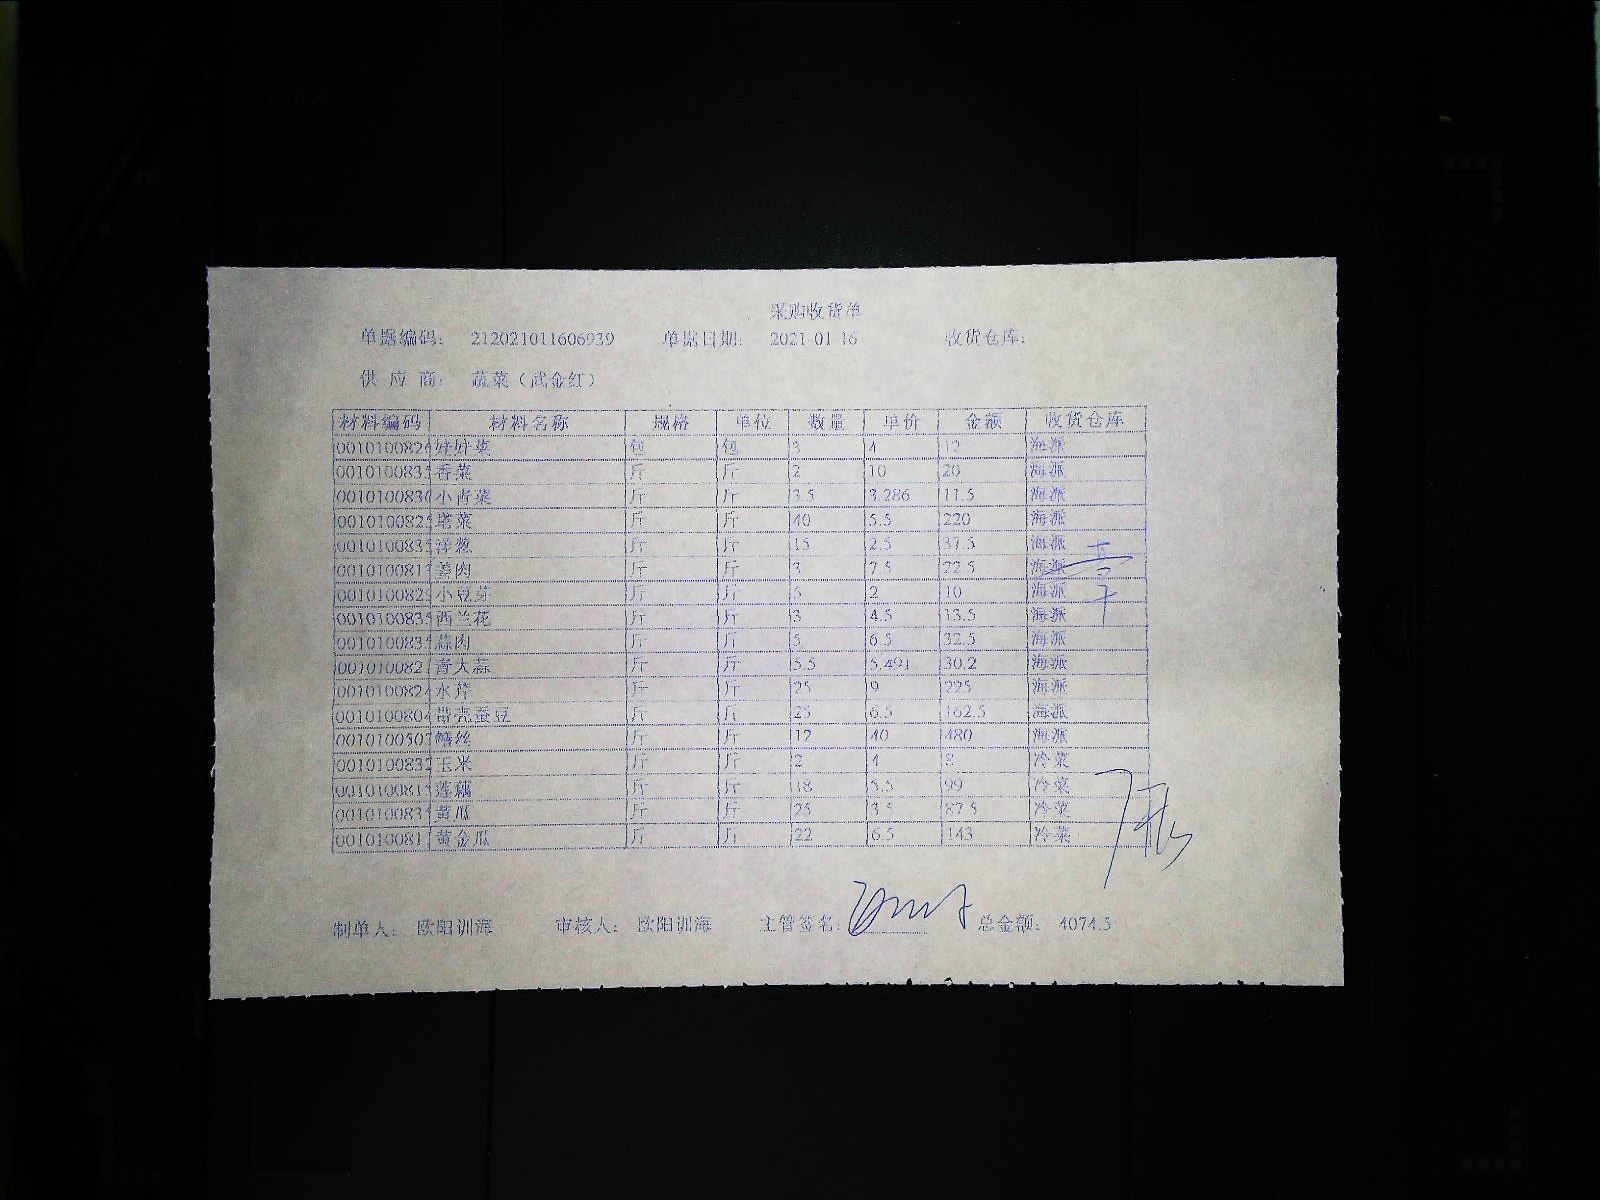 采购收货单
单据编码： 212021011606939 单据日期： 2021-01-16 收货仓库：
供 应 商： 蔬菜（武金红）
材料编码 材料名称 规格 单位 数量 单价 金额 收货仓库
0010100826 好好菜 包 包 3 4 12 海派
001010083 香菜 斤 斤 2 10 20 海派
0010100830 小青菜 斤 斤 3.5 3.286 11.5 海派
0010100825 塔菜 斤 斤 40 5.5 220 海派
001010083 洋葱 斤 斤 15 2.5 37.5 海派
001010081 姜肉 斤 斤 3 7.5 22.5 海派
001010082 小豆芽 斤 斤 5 2 10 海派
001010083 西兰花 斤 斤 3 4.5 13.5 海派
001010083 蒜肉 斤 斤 5 6.5 32.5 海派
001010082 青大蒜 斤 斤 5.5 5.491 30.2 海派
0010100824 水芹 斤 斤 25 9 225 海派
0010100804 带壳蚕豆 斤 斤 25 6.5 162.5 海派
001010050 斤 斤 12 40 480 海派
0010100832 玉米 斤 斤 2 4 8 冷菜
001010081 莲藕 斤 斤 18 5.5 99 冷菜
001010083 黄瓜 斤 斤 25 3.5 87.5 冷菜
001010081 黄金瓜 斤 斤 22 6.5 143 冷菜
制单人： 欧阳训海 审核人： 欧阳训海 主管签名： 总金额： 4074.5